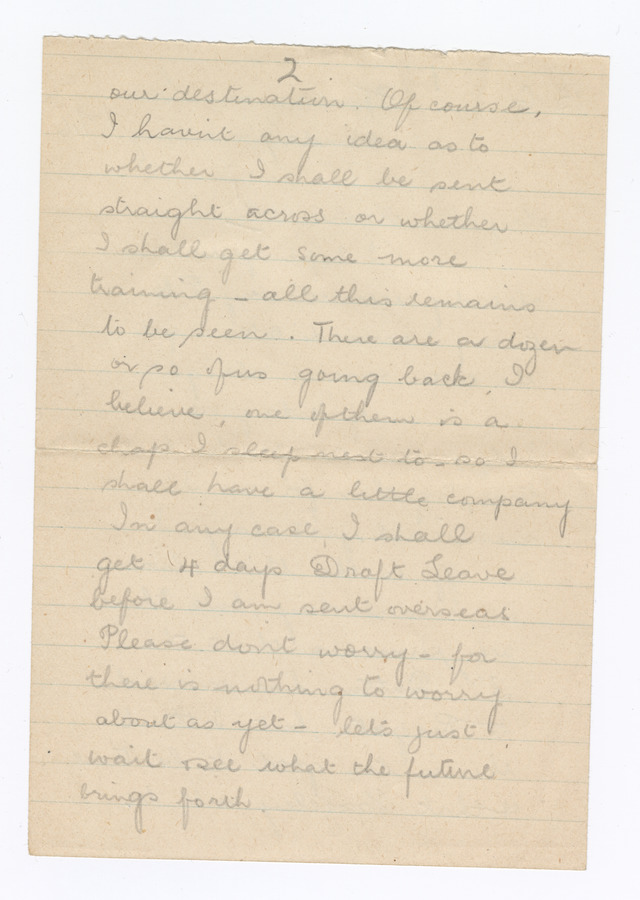 2
our destination. Of course,
I havn't any idea as to
whether I shall be sent
straight across or whether
I shall get some more
training - all this remains
to be seen. There are a dozen
or so of us going back, I
believe, one of them is a
chap I sleep next to - so I
shall have a little company
In any case, I shall
get 14 days Draft Leave
before I am sent overseas
Please don't worry - for
there is nothing to worry
about as yet - let's just
wait & see what the future
brings forth.